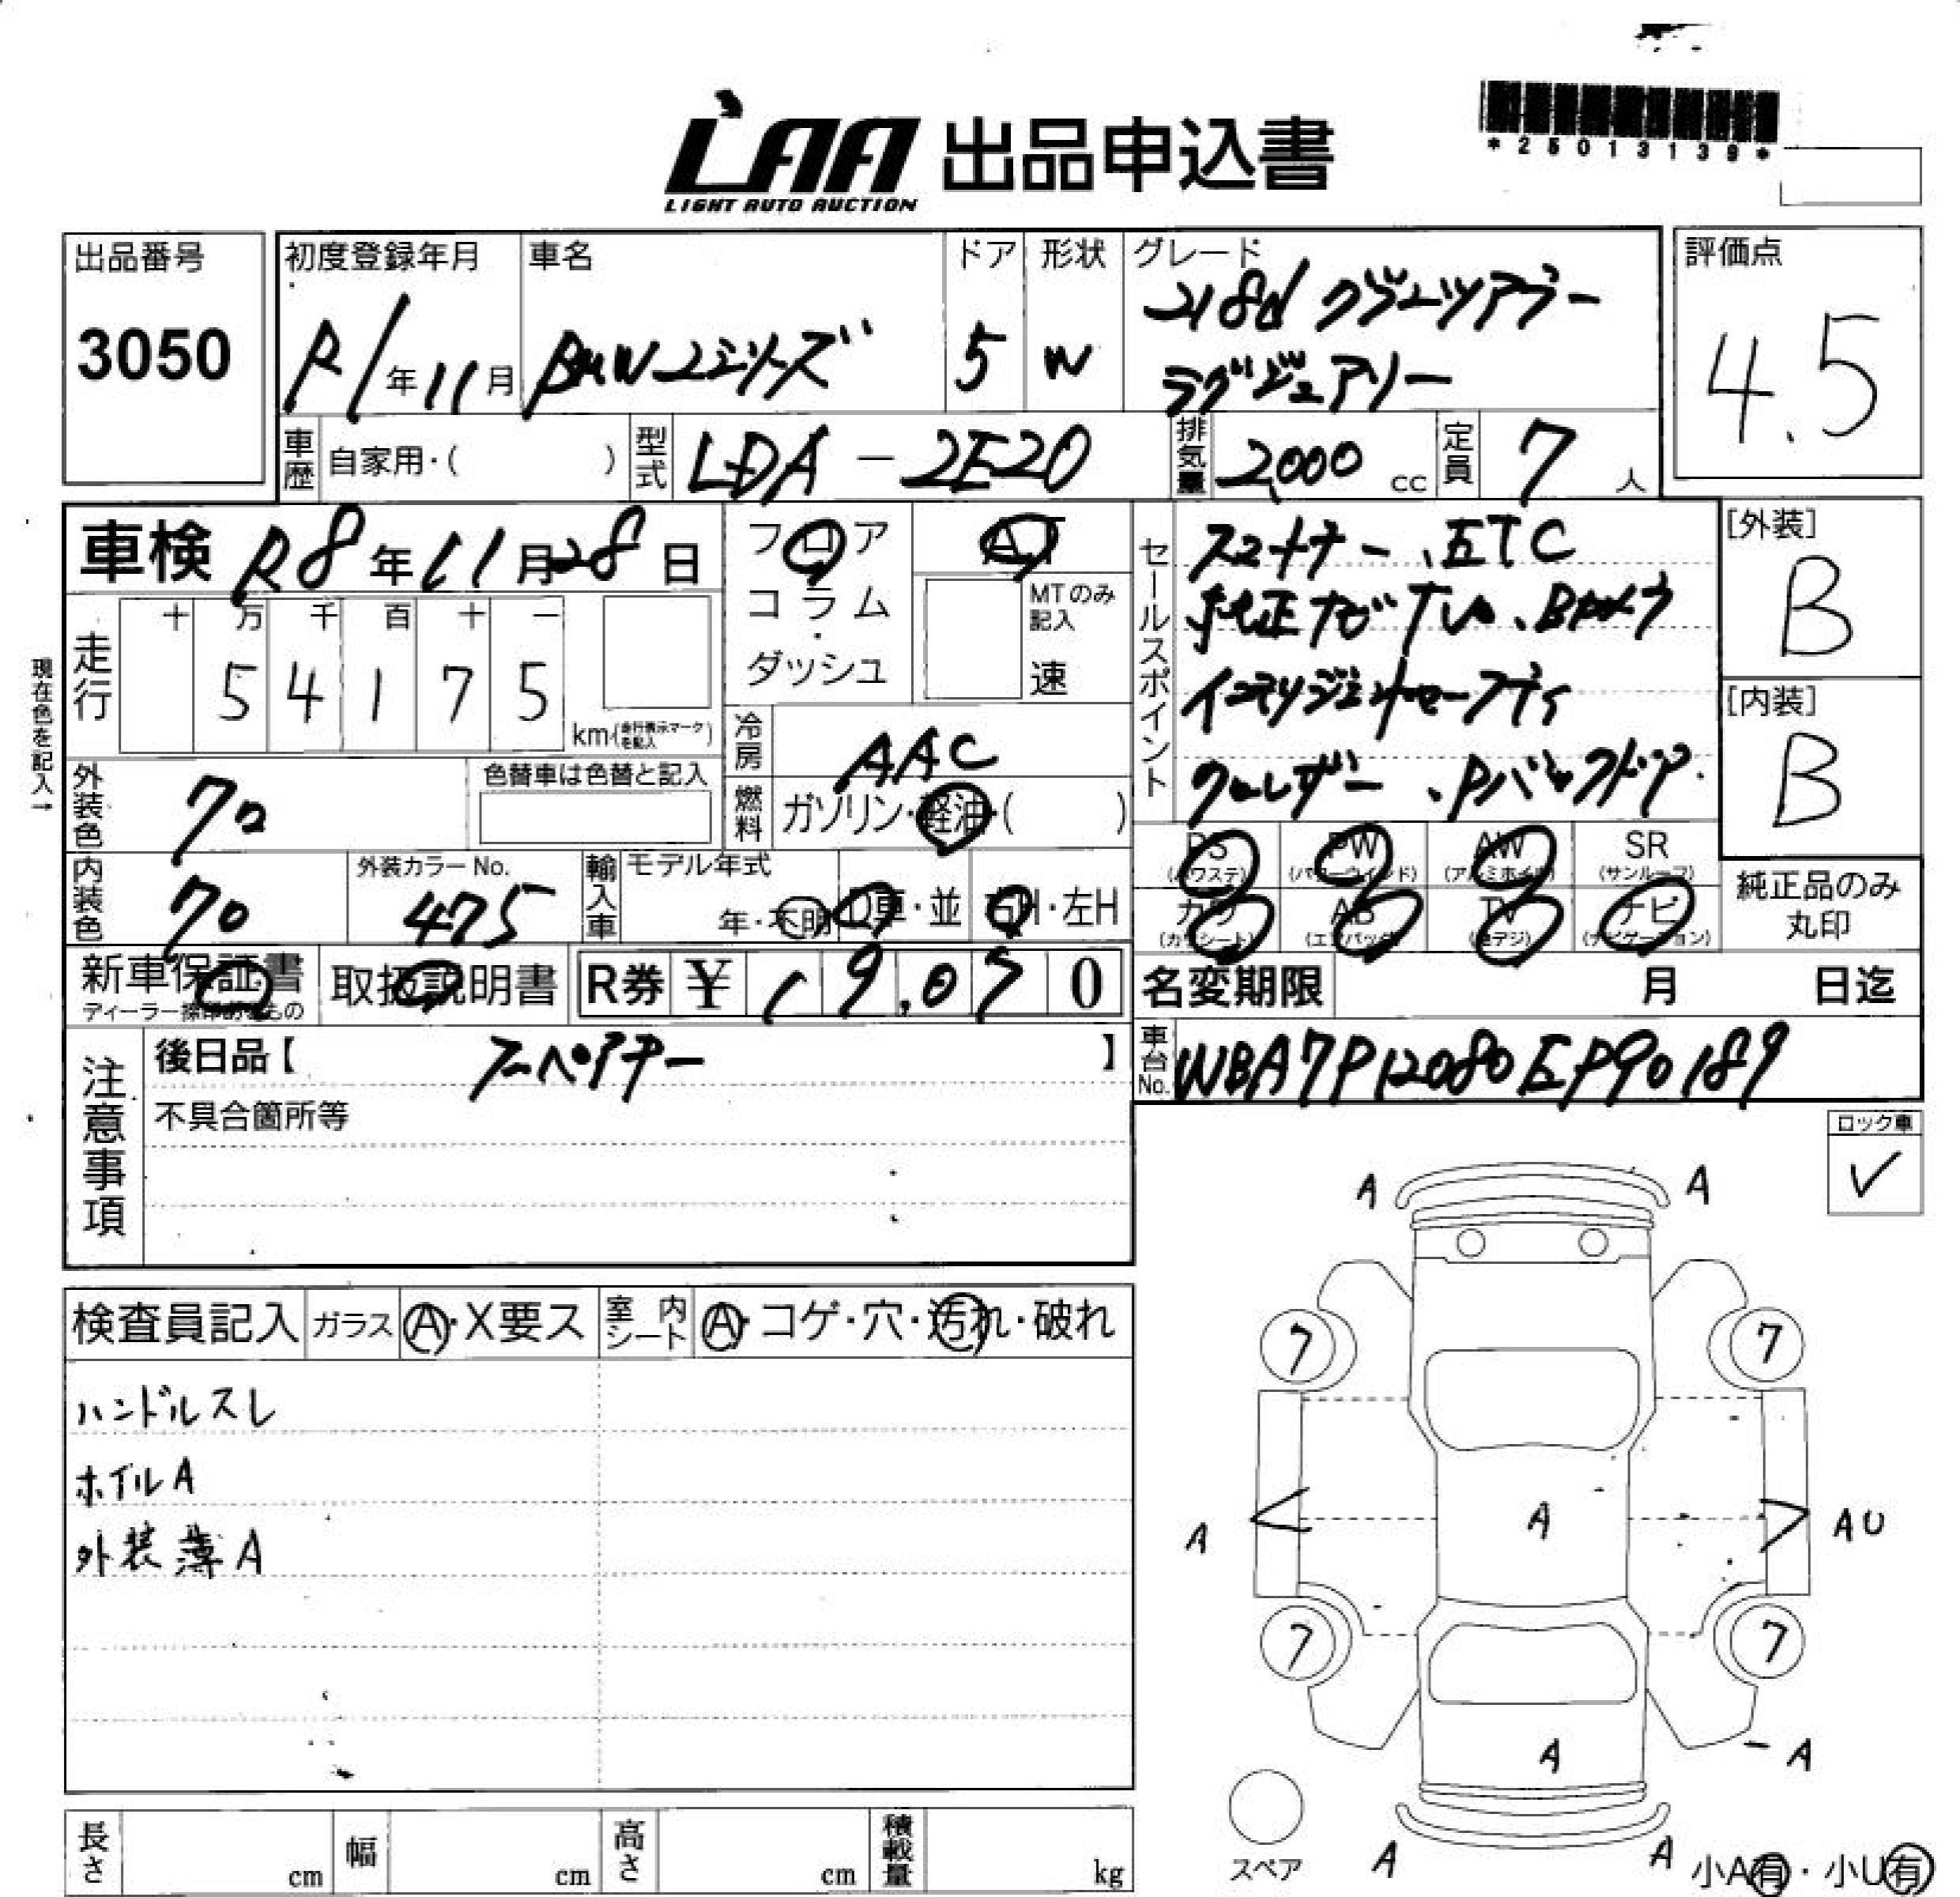 LAA 出品申込書
LIGHT AUTO AUCTION
*25013139*
出品番号
3050
初度登録年月
R1年11月
車名
BMW 2シリーズ
ドア
5
形状
W
グレード
218d グランツアラー
ラグジュアリー
評価点
4.5
車歴
自家用・( )
型式
LDA-2E20
排気量
2,000 cc
定員
7人
車検 R8年11月28日
フロア
コラム
・
ダッシュ
AT
MTのみ
記入
速
セールスポイント
スマートキー、ETC
純正ナビTV、Bカメラ
インテリジェントセーフティ
クルーズ、Pバックドア
[外装]
B
[内装]
B
現在色を記入→
走行
十 万 千 百 十 一
5 4 1 7 5
km (走行表示マークを記入)
冷房
AAC
燃料
ガソリン・軽油・( )
外装色
クロ
色替車は色替と記入
内装色
クロ
外装カラーNo.
475
輸入車
モデル年式
年・不明
D車・並
右H・左H
PS (パワステ)
PW (パワーウインド)
AW (アルミホイル)
SR (サンルーフ)
カワ (カワシート)
AB (エアバック)
TV (地デジ)
ナビ (ナビゲーション)
純正品のみ
丸印
新車保証書
取扱説明書
R券 ¥ 19,070
名変期限 月 日迄
車台No.
WBA7P12080EP90189
注意事項
後日品【 スペアキー 】
不具合箇所等
ロック車
✓
検査員記入
ガラス
A・X要ス
室内シート
A・コゲ・穴・汚れ・破れ
ハンドルスレ
ホイルA
外装薄A
A A
7 7
A A AU
7 7
A A
A A
スペア
小A有・小U有
長さ cm
幅 cm
高さ cm
積載量 kg